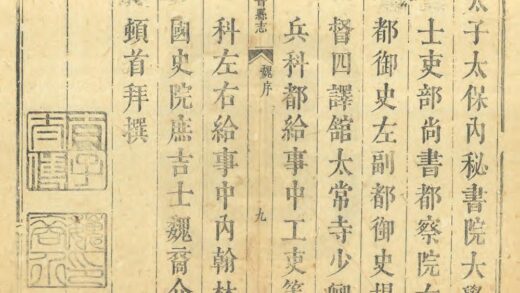 太子太保內秘書院大學
士吏部尚書都察院左
都御史左副都御史提
督四譯館太常寺少卿
縣志
魏序
九
兵科都給事中工吏等
科左右給事中內翰林
國史院庶吉士魏裔介
頓首拜撰